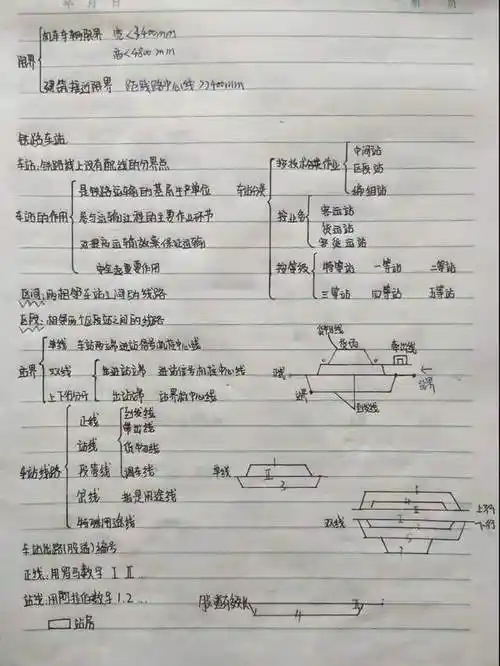 限界
机车车辆限界 宽<3400mm
高<4800mm
建筑接近限界 距线路中心线>2400mm
铁路车站
车站:铁路线上设有配线的分界点
车站的作用
是铁路运输的基层生产单位
参与运输过程的主要作业环节
安全起重要作用
车站分类
按技术作业
中间站
区段站
编组站
按业务
客运站
货运站
客货运站
按等级
特等站 一等站 二等站
三等站 四等站 五等站
区间:两相邻车站之间的线路
区段:相邻两个区段站之间的线路
站界
单线 车站两端进站信号机柱中心线
双线
进站端 进站信号机柱中心线
上下行分开
出站端 站界标中心线
车站线路
正线
站线
到发线
牵出线
货物线
调车线
段管线
岔线
特别用途线
货物线
货场
牵出线
正线
站界
站界
到发线
单线
1
Ⅱ
3
双线
上行
下行
车站线路(股道)编号
正线:用罗马数字 Ⅰ Ⅱ...
站线:用阿拉伯数字 1.2...
站房
股道有效长
4